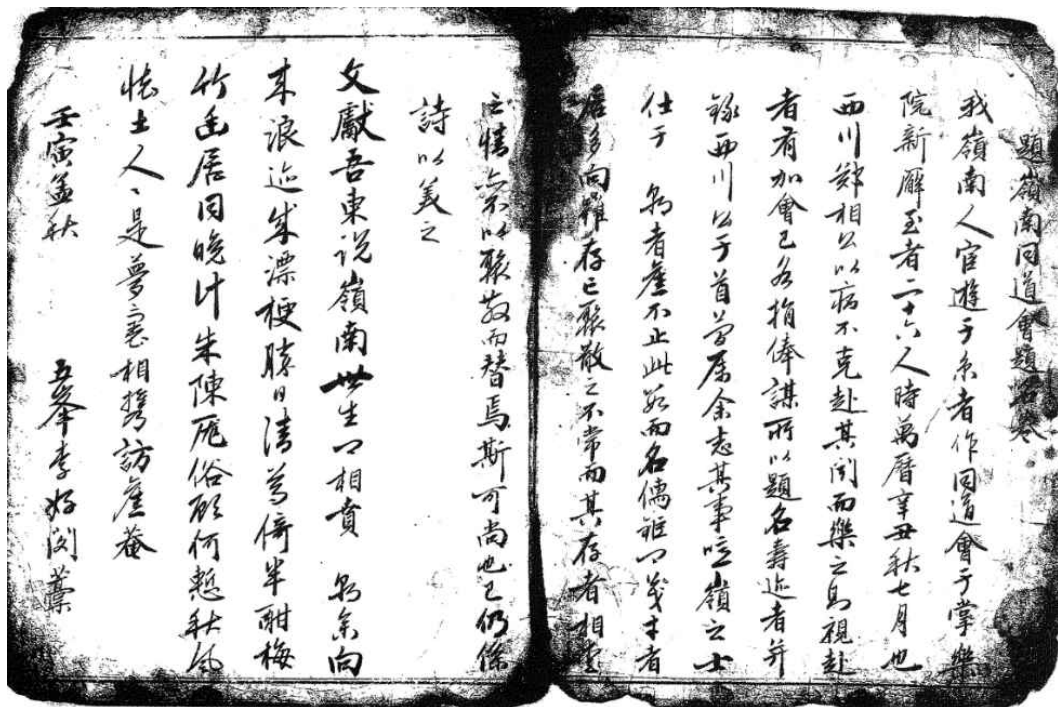 題嶺南同道會題名卷
我嶺南人宦遊于京者作同道會于掌樂
院新廨至者二十六人時萬曆辛丑秋七月也
西川鄭相公以病不克赴其聞而樂之爲視赴
者有加會已各捐俸謀所以題名壽迹者并
錄西川公于首簡屬余志其事噫嶺之士
仕于 朝者舊不止此數而名儒雖以
居多向 存亡聚散之不常而其存者相
之情亦不以聚散而替焉斯可尚也已仍係
詩以美之
文獻吾東說嶺南 生 相貢 朝 向
來浪迹 漂梗勝日清 倚半酣梅
竹 居同晚計朱陳 俗 何慙秋風
懷土人人是夢裏相携訪舊菴
壬寅孟秋 五峯李好閔藁